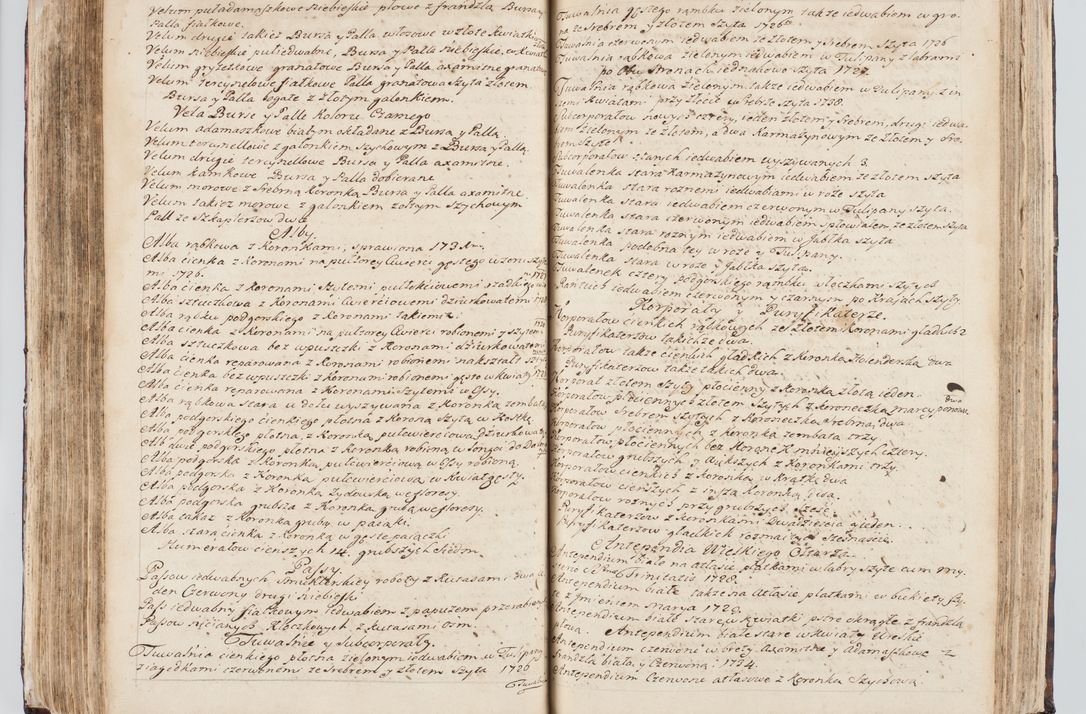 Velum puładamaszkowe Niebieskie płowe z frandzlą Bursa y
Palla fiałkowe.
Velum drugie takież Bursa y Palla włosowe w złote kwiatki
Velum Niebieskie pułiedwabne, Bursa y Palla niebieskie, w kwiat
Velum gryzetkowe granatowe Bursa y Palla axamitne granatowe
Velum tercynelowe fiałkowe Palla granatowa szyta złotem
Bursa y Palla bogate z złotym galonkiem.
Vela Burse y Palle koloru Czarnego
Velum adamaszkowe białym okładane z Bursą y Pallą
Velum tercynellowe z galonkiem szychowym z Bursą y Pallą.
Velum drugie tercynellowe Bursa y Palla axamitne.
Velum kamkowe Bursa y Palla dobierane
Velum morowe z srebrną koronką Bursa y Palla axamitne
Velum takież morowe z galonkiem żółtym szychowym
Pall ze Szkaplerzow dwa
Alby.
Alba rąbkowa z koronkami, sprawiona 173
Alba cienka z koronami na pułtorey ćwierci gęstego wzoru
mi 1726.
Alba cienka z koronami szytemi pułłokciowemi rzadkiego
Alba sztuczkowa z koronami ćwierciowemi dziurkowatemi
Alba rąbku podgorskiego z koronami takiemiż
Alba cienka z koronami na pułtorey ćwierci robionemi y szytem
Alba sztuczkowa bez wpuszczki z koronami dziurkowatemi
Alba cienka reparowana z koronami robionemi nakształt
Alba cienka bez wpuszczki z koronami robionemi gęsto w kwiaty
Alba cienka reparowana z koronami szytemi w Osy.
Alba rąbkowa stara u dołu wyszywana z koronką zembatą
Alba podgorskiego cienkiego płotna z koroną szytą w kostkę
Alba podgorskiego płotna, z koronką pułćwierciową dziurkowa
Alb dwie podgorskiego płotna z koronką robioną
Alba podgorska z koronką pułćwierciową w Osy robioną.
Alba podgorska z koronką pułćwierciową w kwiat gęsty.
Alba podgorska z koronką Żydowską w esforesy.
Alba podgorska grubsza z koronką grubą w esforesy.
Alba takaż z koronką grubą w pazaki.
Alba stara cienka z koronką w gęste pajączki
Humerałow cienszych 14. grubszych siedm.
Passy.
Passow iedwabnych Szmuklerskiey roboty z kutasami dwa
den Czerwony drugi Niebieski
Pass iedwabny fiałkowym iedwabiem z papuzem przerabiany
Passow nicianych kloczkowych z kutasami osm.
Tuwalnie y Subcorporały.
Tuwalnia cienkiego płotna zielonym iedwabiem w Tulipany
z iagodkami czerwonem ze srebrem y złotem szyta 1726
Tuwalnia
Tuwalnia gęstego rąmbku zielonym także iedwabiem w gro-
na ze srebrem y złotem szyta 1726
Tuwalnia czerwonym iedwabiem ze złotem y srebrem szyta 1726
Tuwalnia rąbkowa zielonym iedwabiem w Tulipany z labrami
po obu stronach iednakowo szyta 1727.
Tuwalnia rąbkowa zielonym także iedwabiem w Tulipany z in
szemi kwiatami przy złocie y srebrze szyta 1728.
Subcorporałow nowych cztery, ieden złotem y srebrem, drugi iedwa
biem zielonym ze złotem, a dwa karmazynowym ze złotem y sre
brem szyte
Subcorporałow starych iedwabiem wyszywanych 3.
Tuwalenka stara karmazynowym iedwabiem ze złotem szyta
Tuwalenka stara roznemi iedwabiami w roże szyta
Tuwalenka stara iedwabiem czerwonym w Tulipany szyta.
Tuwalenka stara czerwonym iedwabiem spłowiałem, ze złotem szyta
Tuwalenka stara roznym iedwabiem w Jabłka szyta
Tuwalenka podobna tey w roże y Tulipany.
Tuwalenka stara w roże y Jabłka szyta.
Tuwalenek cztery podgorskiego rąmbku włoczkami szytych
Pantuch iedwabiem czerwonym y czarnym po krajach szyty
Korporały y Puryfikaterze.
Korporałow cienkich rąbkowych ze złotemi koronami gładkich 2
Puryfikaterzow takichże dwa.
Korporałow także cienkich gładkich z koronką Holenderską dwa
Puryfikaterzow takież takich dwa.
Korporał złotem szyty płocienny z koronką złotą ieden.
Korporałow płociennych złotem szytych z koroneczką marcyponową dwa
Korporałow srebrem szytych z koroneczką srebrną, dwa.
Korporałow płociennych, z koronką zembatą trzy
Korporałow płociennych bez koronek mnieyszych cztery.
Korporałow grubszych y większych z koronkami trzy.
Korporałow cienkich z koronką w kratkę dwa
Korporałow cienszych z inszą koronką dwa.
Korporałow roznych przy grubszych sześć
Puryfikaterzow z koronkami Dwadzieścia y ieden.
Puryfikaterzow gładkich roznaitych siednaście.
Antependia Wielkiego Ołtarza.
Antependium białe na atłasie płatkami w labry szyte cum my-
sterio SSmae Trinitatis 1728.
Antependium białe także na atłasie płatkami w bukiety szy-
te z Jmieniem Marya 1729.
Antependium białe stare w kwiatki pstre okrągłe z frandzlą
płową. Antependium białe stare w kwiaty wreskie
Antependium czerwone w bręzy axamitne y Adamaszkowe z
frandzlą białą y czerwoną: 1734.
Antependium Czerwone atłasowe z koronką szychową